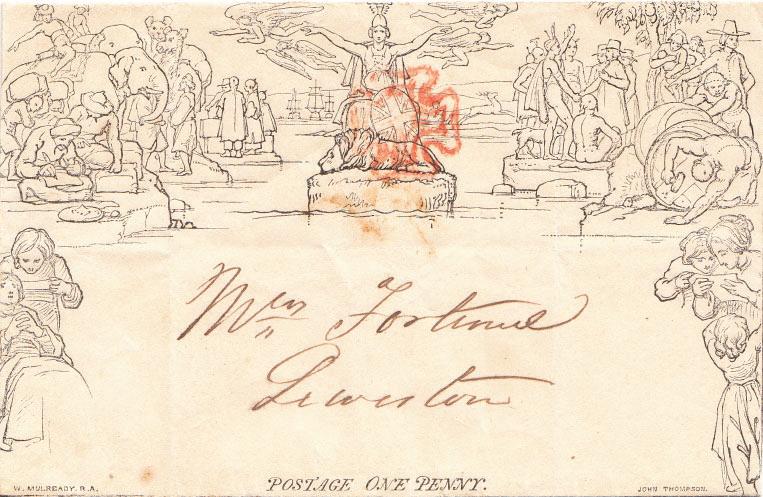 Mrs Fortune
Leweston
W. MULREADY. R.A.
POSTAGE ONE PENNY.
JOHN THOMPSON.